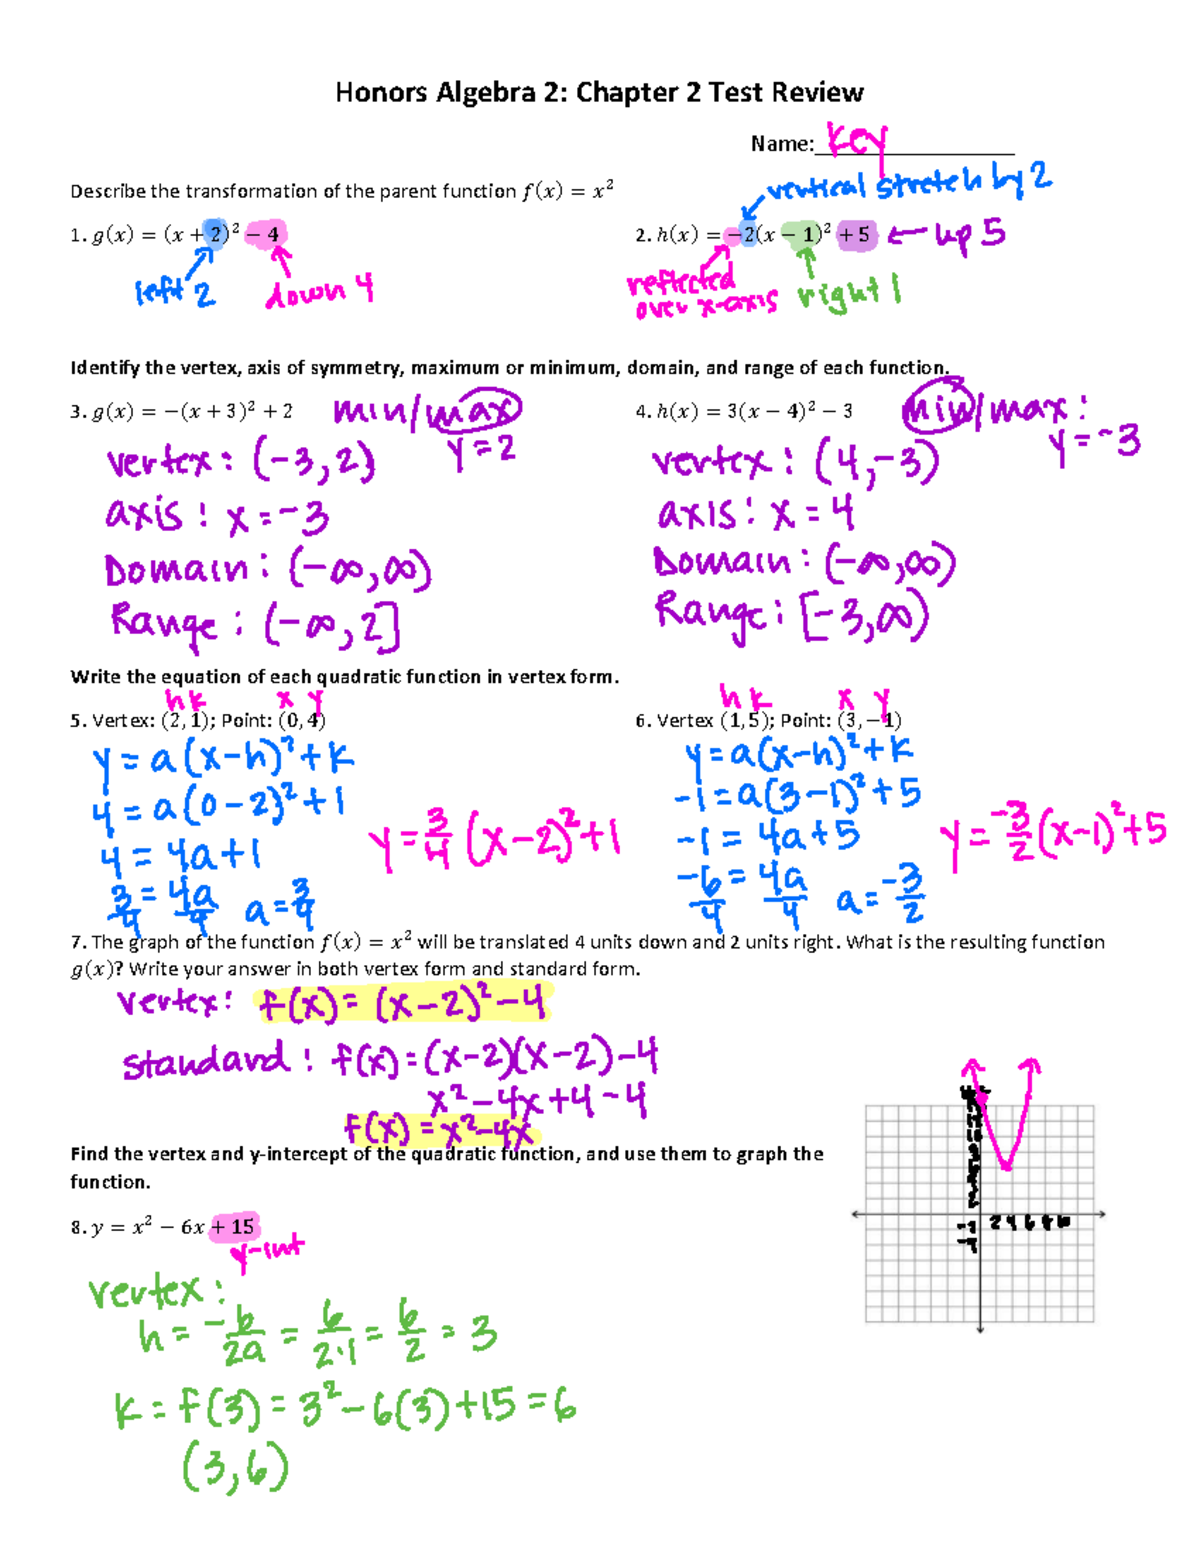 Honors Algebra 2: Chapter 2 Test Review
Name: Key
Describe the transformation of the parent function f(x) = x²
vertical stretch by 2
1. g(x) = (x + 2)² − 4
2. h(x) = −2(x − 1)² + 5 ← up 5
left 2 down 4
reflected over x-axis right 1
Identify the vertex, axis of symmetry, maximum or minimum, domain, and range of each function.
3. g(x) = −(x + 3)² + 2 min/max
y = 2
vertex: (-3, 2)
axis: x = -3
Domain: (-∞, ∞)
Range: (-∞, 2]
4. h(x) = 3(x − 4)² − 3 min/max:
y = -3
vertex: (4, -3)
axis: x = 4
Domain: (-∞, ∞)
Range: [-3, ∞)
Write the equation of each quadratic function in vertex form.
h k x y
5. Vertex: (2, 1); Point: (0, 4)
y = a(x-h)² + k
4 = a(0-2)² + 1
4 = 4a + 1
3/4 = 4a/4 a = 3/4
y = 3/4 (x-2)² + 1
h k x y
6. Vertex (1, 5); Point: (3, −1)
y = a(x-h)² + k
-1 = a(3-1)² + 5
-1 = 4a + 5
-6/4 = 4a/4 a = -3/2
y = -3/2 (x-1)² + 5
7. The graph of the function f(x) = x² will be translated 4 units down and 2 units right. What is the resulting function
g(x)? Write your answer in both vertex form and standard form.
vertex: f(x) = (x-2)² - 4
standard: f(x) = (x-2)(x-2) - 4
x² - 4x + 4 - 4
f(x) = x² - 4x
Find the vertex and y-intercept of the quadratic function, and use them to graph the
function.
8. y = x² − 6x + 15
y-int
vertex:
h = -b/2a = 6/2·1 = 6/2 = 3
k = f(3) = 3² - 6(3) + 15 = 6
(3, 6)
2 4 6